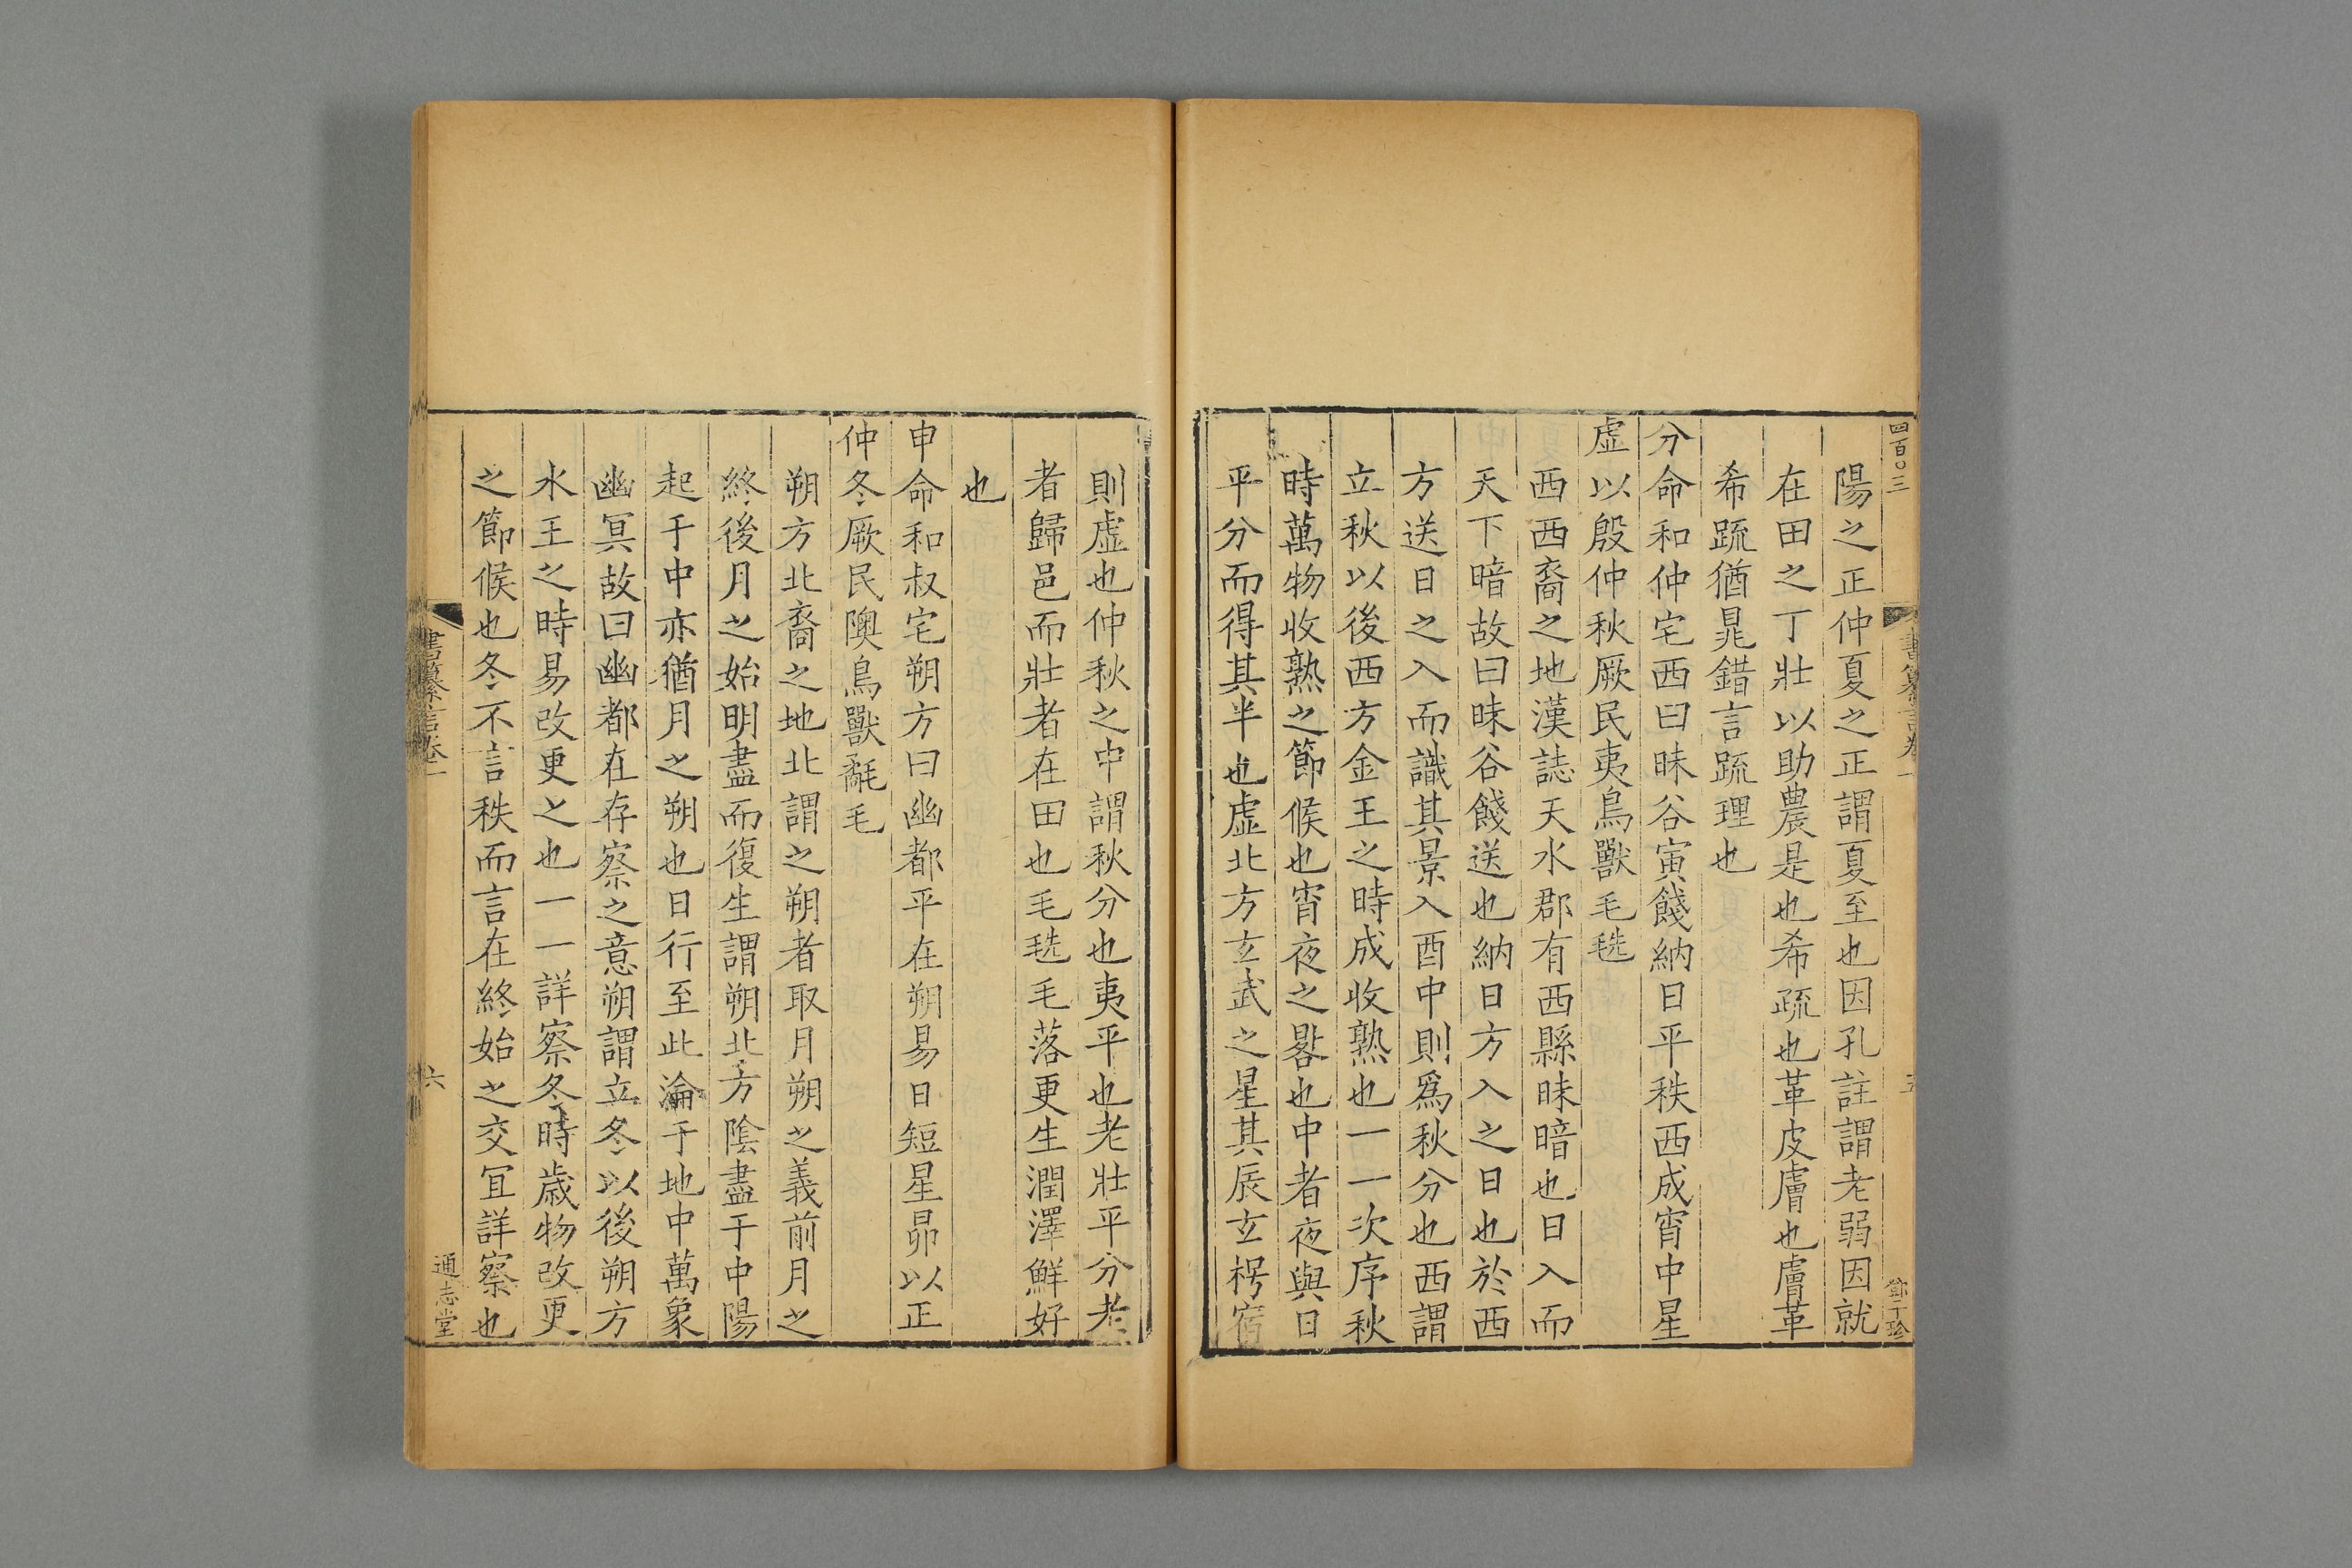 四百〇三
書纂言卷一
五
鄧丁珍
陽之正仲夏之正謂夏至也因孔註謂老弱因就
在田之丁壯以助農是也希疏也革皮膚也膚革
希䟽猶晁錯言䟽理也
分命和仲宅西曰昧谷寅餞納日平秩西成宵中星
虛以殷仲秋厥民夷鳥獸毛毨
西西裔之地漢誌天水郡有西縣昧暗也日入而
天下暗故曰昧谷餞送也納日方入之日也於西
方送日之入而識其景入酉中則爲秋分也西謂
立秋以後西方金王之時成收熟也一一次序秋
時萬物收熟之節候也宵夜之晷也中者夜與日
平分而得其半也虛北方玄武之星其辰玄枵宿
則虛也仲秋之中謂秋分也夷平也老壯平分老
者歸邑而壯者在田也毛毨毛落更生潤澤鮮好
也
申命和叔宅朔方曰幽都平在朔易日短星昴以正
仲冬厥民隩鳥獸氄毛
朔方北裔之地北謂之朔者取月朔之義前月之
終後月之始明盡而復生謂朔北方陰盡于中陽
起于中亦猶月之朔也日行至此淪于地中萬象
幽冥故曰幽都在存察之意朔謂立冬以後朔方
水王之時易改更之也一一詳察冬時歲物改更
之節候也冬不言秩而言在終始之交冝詳察也
書纂言卷一
六
通志堂